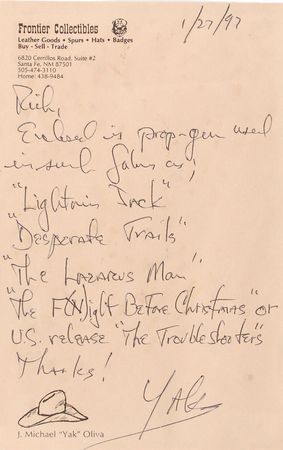 Frontier Collectibles
Leather Goods • Spurs • Hats • Badges
Buy - Sell - Trade
6820 Cerrillos Road, Suite #2
Santa Fe, NM 87501
505-474-3110
Home: 438-9484
1/27/97
Rich,
Enclosed is prop-gun used
in such films as;
"Lightning Jack"
"Desperate Trails"
"The Lazarus Man"
"The F(N)ight Before Christmas" or
U.S. release "The Troubleshooters"
Thanks!
YAK
J. Michael "Yak" Oliva